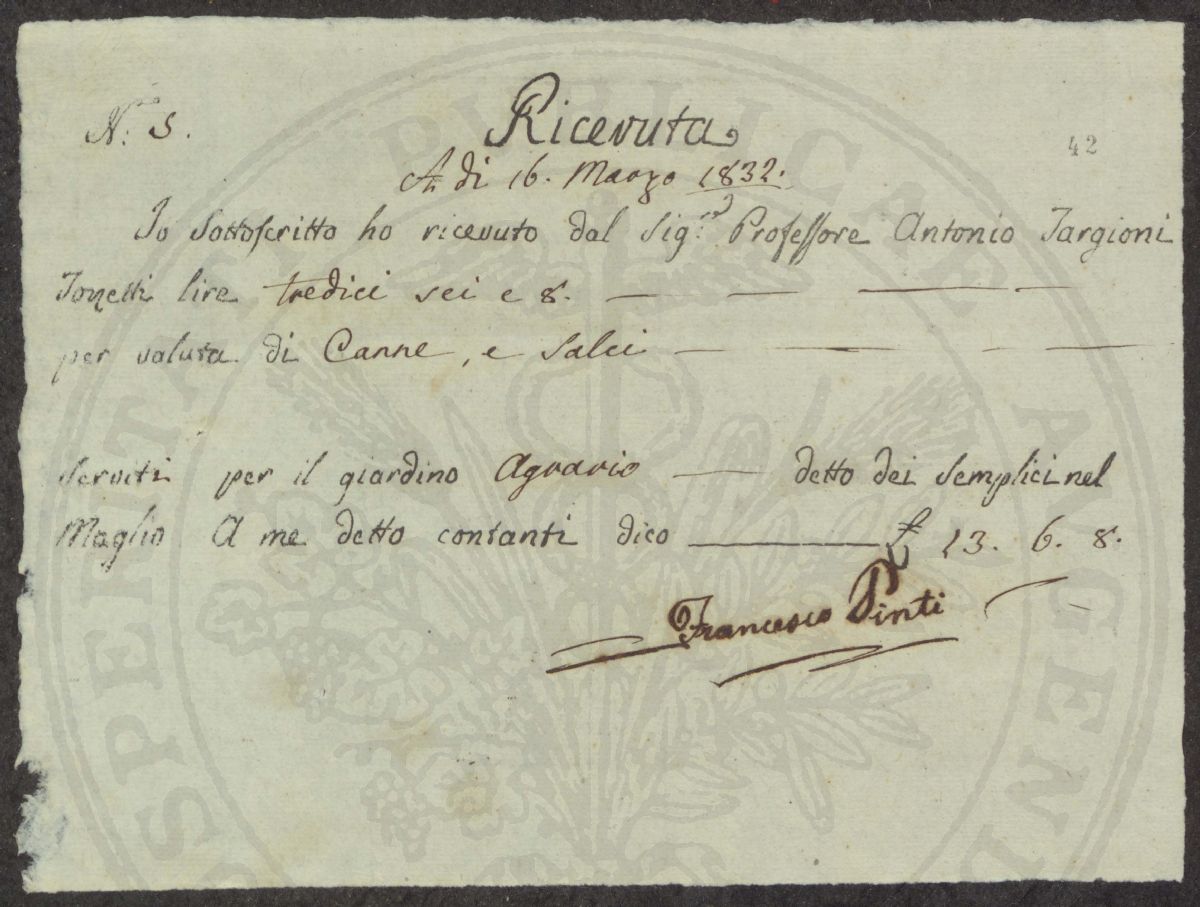 N. 5.
Ricevuta
42
A dì 16. Marzo 1832.
Io Sottoscritto ho ricevuto dal Sig.re Professore Antonio Targioni
Tozzetti lire tredici sei e 8. — — — —
per valuta di Canne, e Salci — — — —
Serviti per il giardino Agrario — detto dei Semplici nel
Maglio A me detto contanti dico — £ 13. 6. 8.
Francesco Pinti